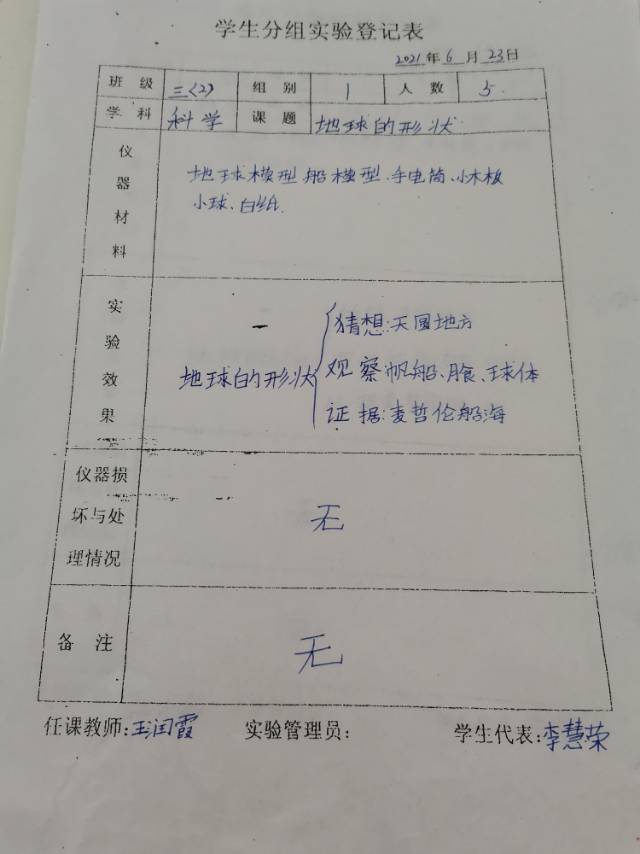 学生分组实验登记表
2021年6月23日
班级 三(2) 组别 1 人数 5
学科 科学 课题 地球的形状
仪器材料
地球模型 船模型、手电筒、小木板
小球、白纸
实验效果
地球的形状
猜想:天圆地方
观察:帆船、月食、球体
证据:麦哲伦船海
仪器损
坏与处
理情况
无
备注
无
任课教师:王闰霞 实验管理员: 学生代表:李慧荣